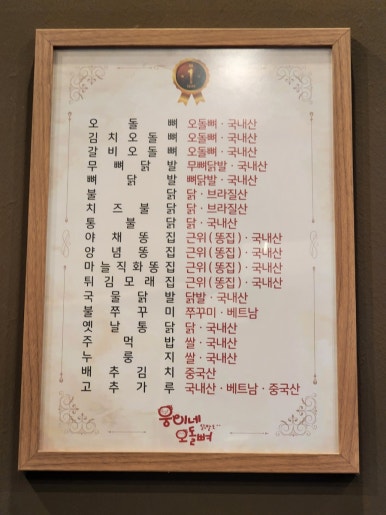 오 돌 뼈 오돌뼈 · 국내산
김 치 오 돌 뼈 오돌뼈 · 국내산
갈 비 오 돌 뼈 오돌뼈 · 국내산
무 뼈 닭 발 무뼈닭발 · 국내산
뼈 닭 발 뼈닭발 · 국내산
불 닭 닭 · 브라질산
치 즈 불 닭 닭 · 브라질산
통 불 닭 닭 · 국내산
야 채 똥 집 근위(똥집) · 국내산
양 념 똥 집 근위(똥집) · 국내산
마 늘 직 화 똥 집 근위(똥집) · 국내산
튀 김 모 래 집 근위(똥집) · 국내산
국 물 닭 발 닭발 · 국내산
불 쭈 꾸 미 쭈꾸미 · 베트남
옛 날 통 닭 닭 · 국내산
주 먹 밥 쌀 · 국내산
누 룽 지 쌀 · 국내산
배 추 김 치 중국산
고 추 가 루 국내산 · 베트남 · 중국산
웅이네
오돌뼈